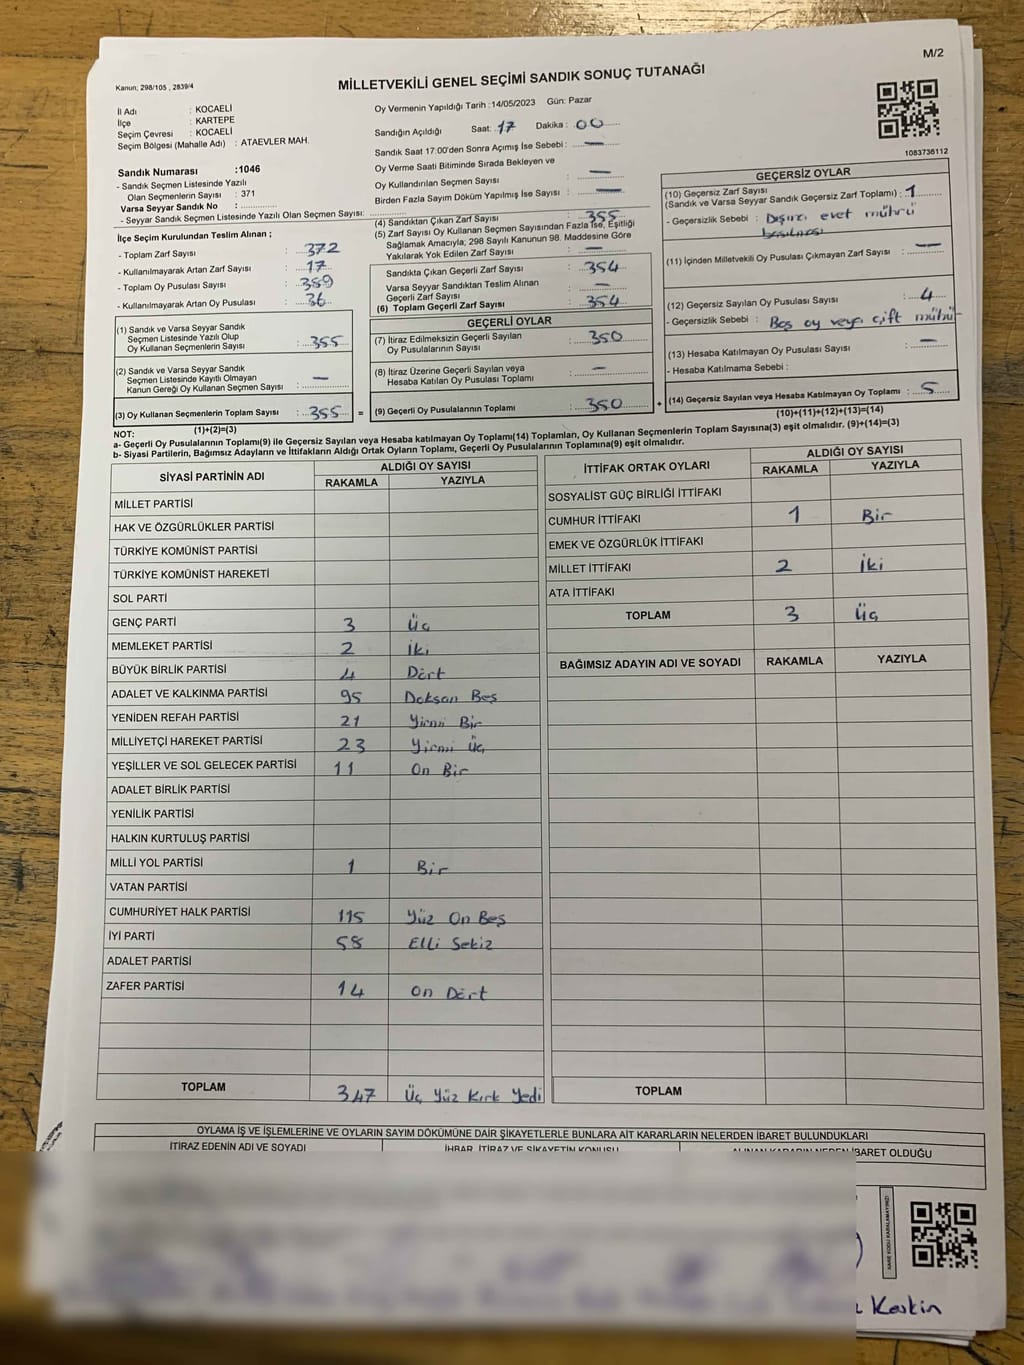 M/2
Kanun; 298/105 , 2839/4
MİLLETVEKİLİ GENEL SEÇİMİ SANDIK SONUÇ TUTANAĞI
İl Adı : KOCAELİ
İlçe : KARTEPE
Seçim Çevresi : KOCAELİ
Seçim Bölgesi (Mahalle Adı) : ATAEVLER MAH.
Sandık Numarası :1046
- Sandık Seçmen Listesinde Yazılı
Olan Seçmenlerin Sayısı : 371
Varsa Seyyar Sandık No :
- Seyyar Sandık Seçmen Listesinde Yazılı Olan Seçmen Sayısı:
İlçe Seçim Kurulundan Teslim Alınan ;
- Toplam Zarf Sayısı : 372
- Kullanılmayarak Artan Zarf Sayısı : 17
- Toplam Oy Pusulası Sayısı : 389
- Kullanılmayarak Artan Oy Pusulası : 36
(1) Sandık ve Varsa Seyyar Sandık
Seçmen Listesinde Yazılı Olup
Oy Kullanan Seçmenlerin Sayısı : 355
(2) Sandık ve Varsa Seyyar Sandık
Seçmen Listesinde Kayıtlı Olmayan
Kanun Gereği Oy Kullanan Seçmen Sayısı : —
(3) Oy Kullanan Seçmenlerin Toplam Sayısı : 355 =
(1)+(2)=(3)
Oy Vermenin Yapıldığı Tarih :14/05/2023 Gün: Pazar
Sandığın Açıldığı Saat: 17 Dakika : 00
Sandık Saat 17:00'den Sonra Açımış İse Sebebi : —
Oy Verme Saati Bitiminde Sırada Bekleyen ve
Oy Kullandırılan Seçmen Sayısı —
Birden Fazla Sayım Döküm Yapılmış İse Sayısı : —
(4) Sandıktan Çıkan Zarf Sayısı : 355
(5) Zarf Sayısı Oy Kullanan Seçmen Sayısından Fazla İse, Eşitliği
Sağlamak Amacıyla; 298 Sayılı Kanunun 98. Maddesine Göre
Yakılarak Yok Edilen Zarf Sayısı : —
Sandıkta Çıkan Geçerli Zarf Sayısı : 354
Varsa Seyyar Sandıktan Teslim Alınan
Geçerli Zarf Sayısı : —
(6) Toplam Geçerli Zarf Sayısı : 354
GEÇERLİ OYLAR
(7) İtiraz Edilmeksizin Geçerli Sayılan
Oy Pusulalarının Sayısı : 350
(8) İtiraz Üzerine Geçerli Sayılan veya
Hesaba Katılan Oy Pusulası Toplamı : —
(9) Geçerli Oy Pusulalarının Toplamı : 350 +
1083736112
GEÇERSİZ OYLAR
(10) Geçersiz Zarf Sayısı
(Sandık ve Varsa Seyyar Sandık Geçersiz Zarf Toplamı) : 1
- Geçersizlik Sebebi : Dışına evet mührü
basılması
(11) İçinden Milletvekili Oy Pusulası Çıkmayan Zarf Sayısı : —
(12) Geçersiz Sayılan Oy Pusulası Sayısı : 4
- Geçersizlik Sebebi : Boş oy veya çift mühür
(13) Hesaba Katılmayan Oy Pusulası Sayısı : —
- Hesaba Katılmama Sebebi :
(14) Geçersiz Sayılan veya Hesaba Katılmayan Oy Toplamı : 5
(10)+(11)+(12)+(13)=(14)
NOT:
a- Geçerli Oy Pusulalarının Toplamı(9) ile Geçersiz Sayılan veya Hesaba katılmayan Oy Toplamı(14) Toplamları, Oy Kullanan Seçmenlerin Toplam Sayısına(3) eşit olmalıdır. (9)+(14)=(3)
b- Siyasi Partilerin, Bağımsız Adayların ve İttifakların Aldığı Ortak Oyların Toplamı, Geçerli Oy Pusulalarının Toplamına(9) eşit olmalıdır.
SİYASİ PARTİNİN ADI ALDIĞI OY SAYISI
RAKAMLA YAZIYLA
MİLLET PARTİSİ
HAK VE ÖZGÜRLÜKLER PARTİSİ
TÜRKİYE KOMÜNİST PARTİSİ
TÜRKİYE KOMÜNİST HAREKETİ
SOL PARTİ
GENÇ PARTİ 3 Üç
MEMLEKET PARTİSİ 2 İki
BÜYÜK BİRLİK PARTİSİ 4 Dört
ADALET VE KALKINMA PARTİSİ 95 Doksan Beş
YENİDEN REFAH PARTİSİ 21 Yirmi Bir
MİLLİYETÇİ HAREKET PARTİSİ 23 Yirmi Üç
YEŞİLLER VE SOL GELECEK PARTİSİ 11 On Bir
ADALET BİRLİK PARTİSİ
YENİLİK PARTİSİ
HALKIN KURTULUŞ PARTİSİ
MİLLİ YOL PARTİSİ 1 Bir
VATAN PARTİSİ
CUMHURİYET HALK PARTİSİ 115 Yüz On Beş
İYİ PARTİ 58 Elli Sekiz
ADALET PARTİSİ
ZAFER PARTİSİ 14 On Dört
TOPLAM 347 Üç Yüz Kırk Yedi
İTTİFAK ORTAK OYLARI ALDIĞI OY SAYISI
RAKAMLA YAZIYLA
SOSYALİST GÜÇ BİRLİĞİ İTTİFAKI
CUMHUR İTTİFAKI 1 Bir
EMEK VE ÖZGÜRLÜK İTTİFAKI
MİLLET İTTİFAKI 2 İki
ATA İTTİFAKI
TOPLAM 3 Üç
BAĞIMSIZ ADAYIN ADI VE SOYADI RAKAMLA YAZIYLA
TOPLAM
OYLAMA İŞ VE İŞLEMLERİNE VE OYLARIN SAYIM DÖKÜMÜNE DAİR ŞİKAYETLERLE BUNLARA AİT KARARLARIN NELERDEN İBARET BULUNDUKLARI
İTİRAZ EDENİN ADI VE SOYADI İHBAR, İTİRAZ VE ŞİKAYETİN KONUSU ALINAN KARARIN NEDEN İBARET OLDUĞU
KARE KODU KARALAMAYINIZ!
Keskin